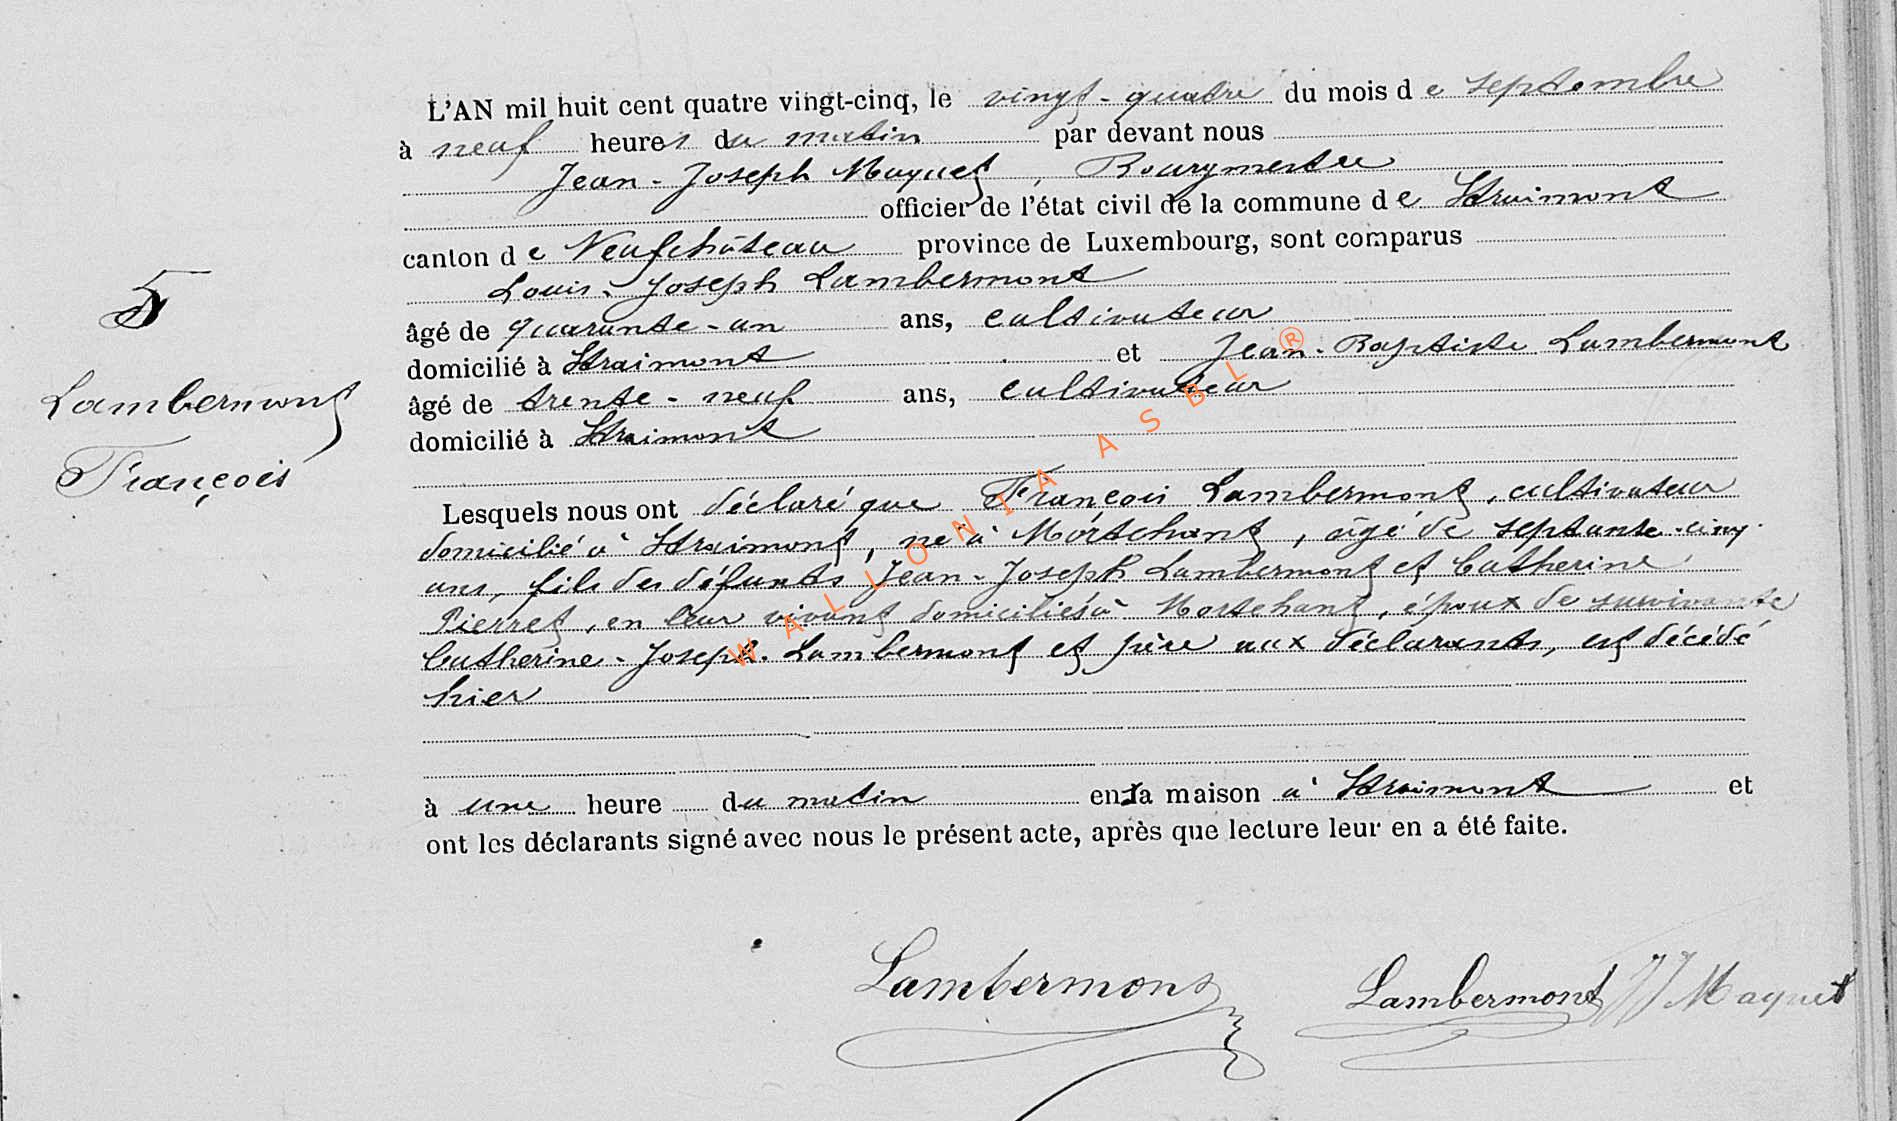 L'AN mil huit cent quatre vingt-cinq, le vingt-quatre du mois de septembre
à neuf heures du matin par devant nous
Jean-Joseph Maquet, Bourgmestre
officier de l'état civil de la commune de Straimont
canton de Neufchâteau province de Luxembourg, sont comparus
Louis-Joseph Lambermont
âgé de quarante-un ans, cultivateur
domicilié à Straimont et Jean-Baptiste Lambermont
âgé de trente-neuf ans, cultivateur
domicilié à Straimont
5
Lambermont
François
Lesquels nous ont déclaré que François Lambermont, cultivateur
domicilié à Straimont, né à Mortehant, âgé de septante-cinq
ans, fils des défunts Jean-Joseph Lambermont et Catherine
Pierret, en leur vivant domiciliés à Mortehant, époux de survivante
Catherine-Joseph Lambermont et père aux déclarants, est décédé
hier
à une heure du matin en sa maison à Straimont et
ont les déclarants signé avec nous le présent acte, après que lecture leur en a été faite.
Lambermont Lambermont JJ Maquet
WALLONIA ASBL ®